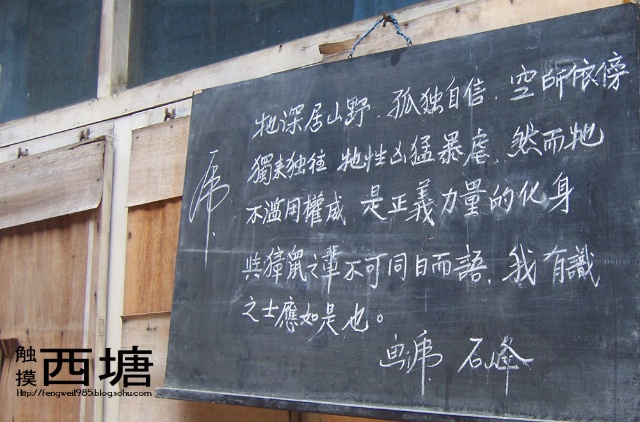 虎
牠深居山野.孤独自信.空所依傍
獨来独往 牠性凶猛暴虐.然而牠
不滥用權威 是正義力量的化身
與獐鼠之輩不可同日而語.我有識
之士應如是也。
画虎 石峰
触摸西塘
http://fengwei1985.blog.sohu.com